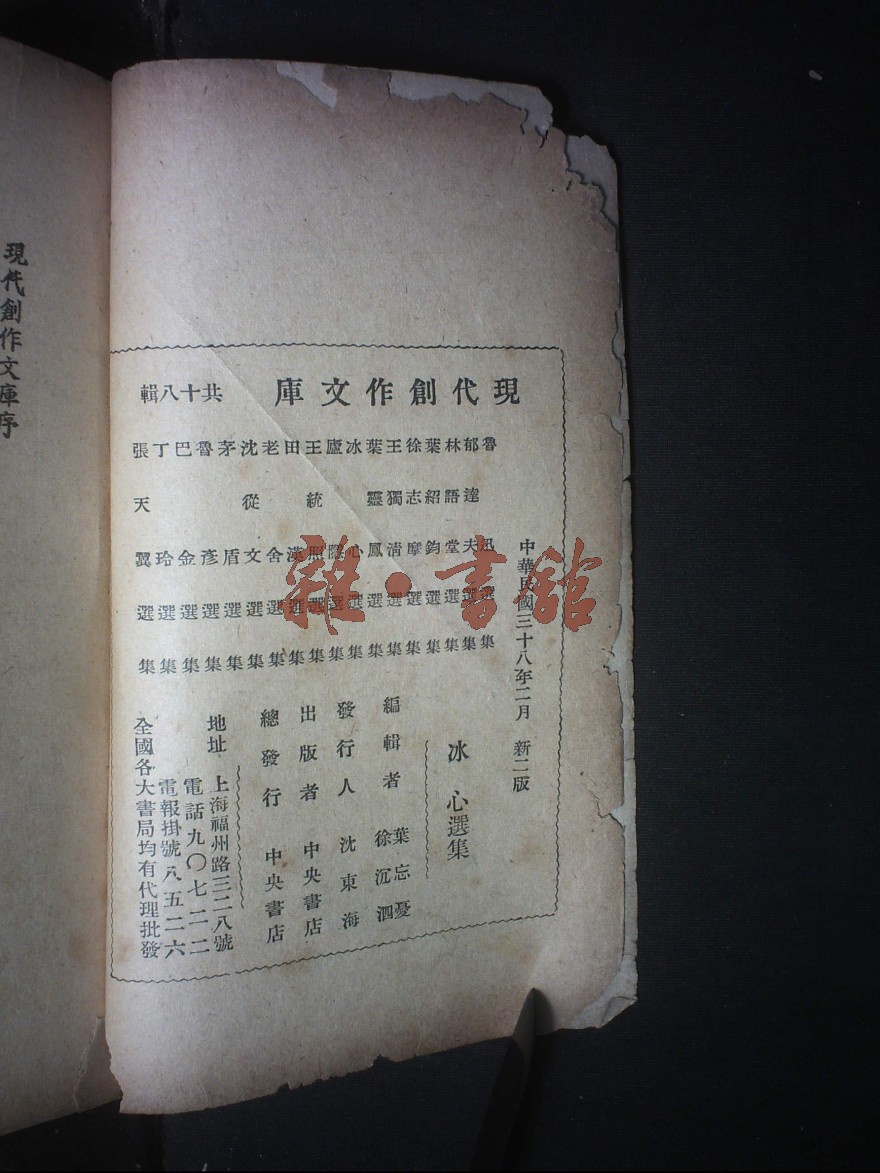 現代創作文庫 共十八輯
魯迅選集
郁達夫選集
林語堂選集
葉紹鈞選集
徐志摩選集
王獨清選集
葉靈鳳選集
冰心選集
廬隱選集
王統照選集
田漢選集
老舍選集
沈從文選集
茅盾選集
魯彥選集
巴金選集
丁玲選集
張天翼選集
中華民國三十八年二月 新二版
冰心選集
編輯者 葉忘憂
徐沉泗
發行人 沈東海
出版者 中央書店
總發行 中央書店
地址 上海福州路三二八號
電話九〇七二二
電報掛號八五二六
全國各大書局均有代理批發
現代創作文庫序
雜·書館